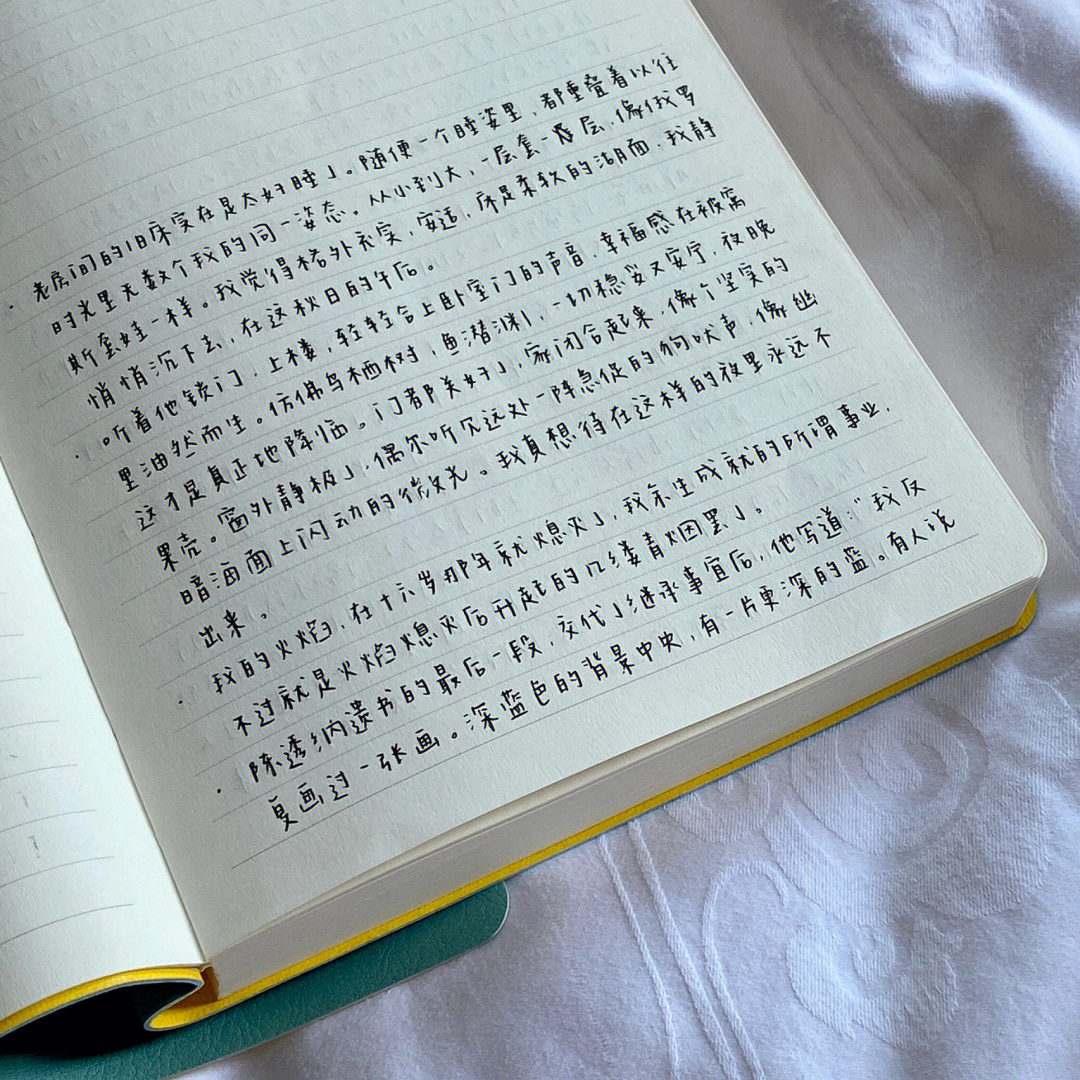 · 老房间的旧床实在是太好睡了。随便一个睡姿里，都重叠着以往
时光里无数个我的同一姿态。从小到大，一层套一层，像俄罗
斯套娃一样。我觉得格外充实，安适，床是柔软的湖面，我静
悄悄沉下去，在这秋日的午后。
· 听着他锁门，上楼，轻轻合上卧室门的声音，幸福感在被窝
里油然而生。仿佛鸟栖树，鱼潜渊，一切稳妥又安宁，夜晚
这才是真正地降临。门都关好了，家闭合起来，像个坚实的
果壳。窗外静极了，偶尔听见远处一阵急促的狗吠声，像幽
暗海面上闪动的微光。我真想待在这样的夜里永远不
出来。
· 我的火焰，在十六岁那年就熄灭了，我余生成就的所谓事业，
不过就是火焰熄灭后升起的几缕青烟罢了。
· 陈透纳遗书的最后一段，交代了继承事宜后，他写道：“我反
复画过一张画。深蓝色的背景中央，有一片更深的蓝。有人说